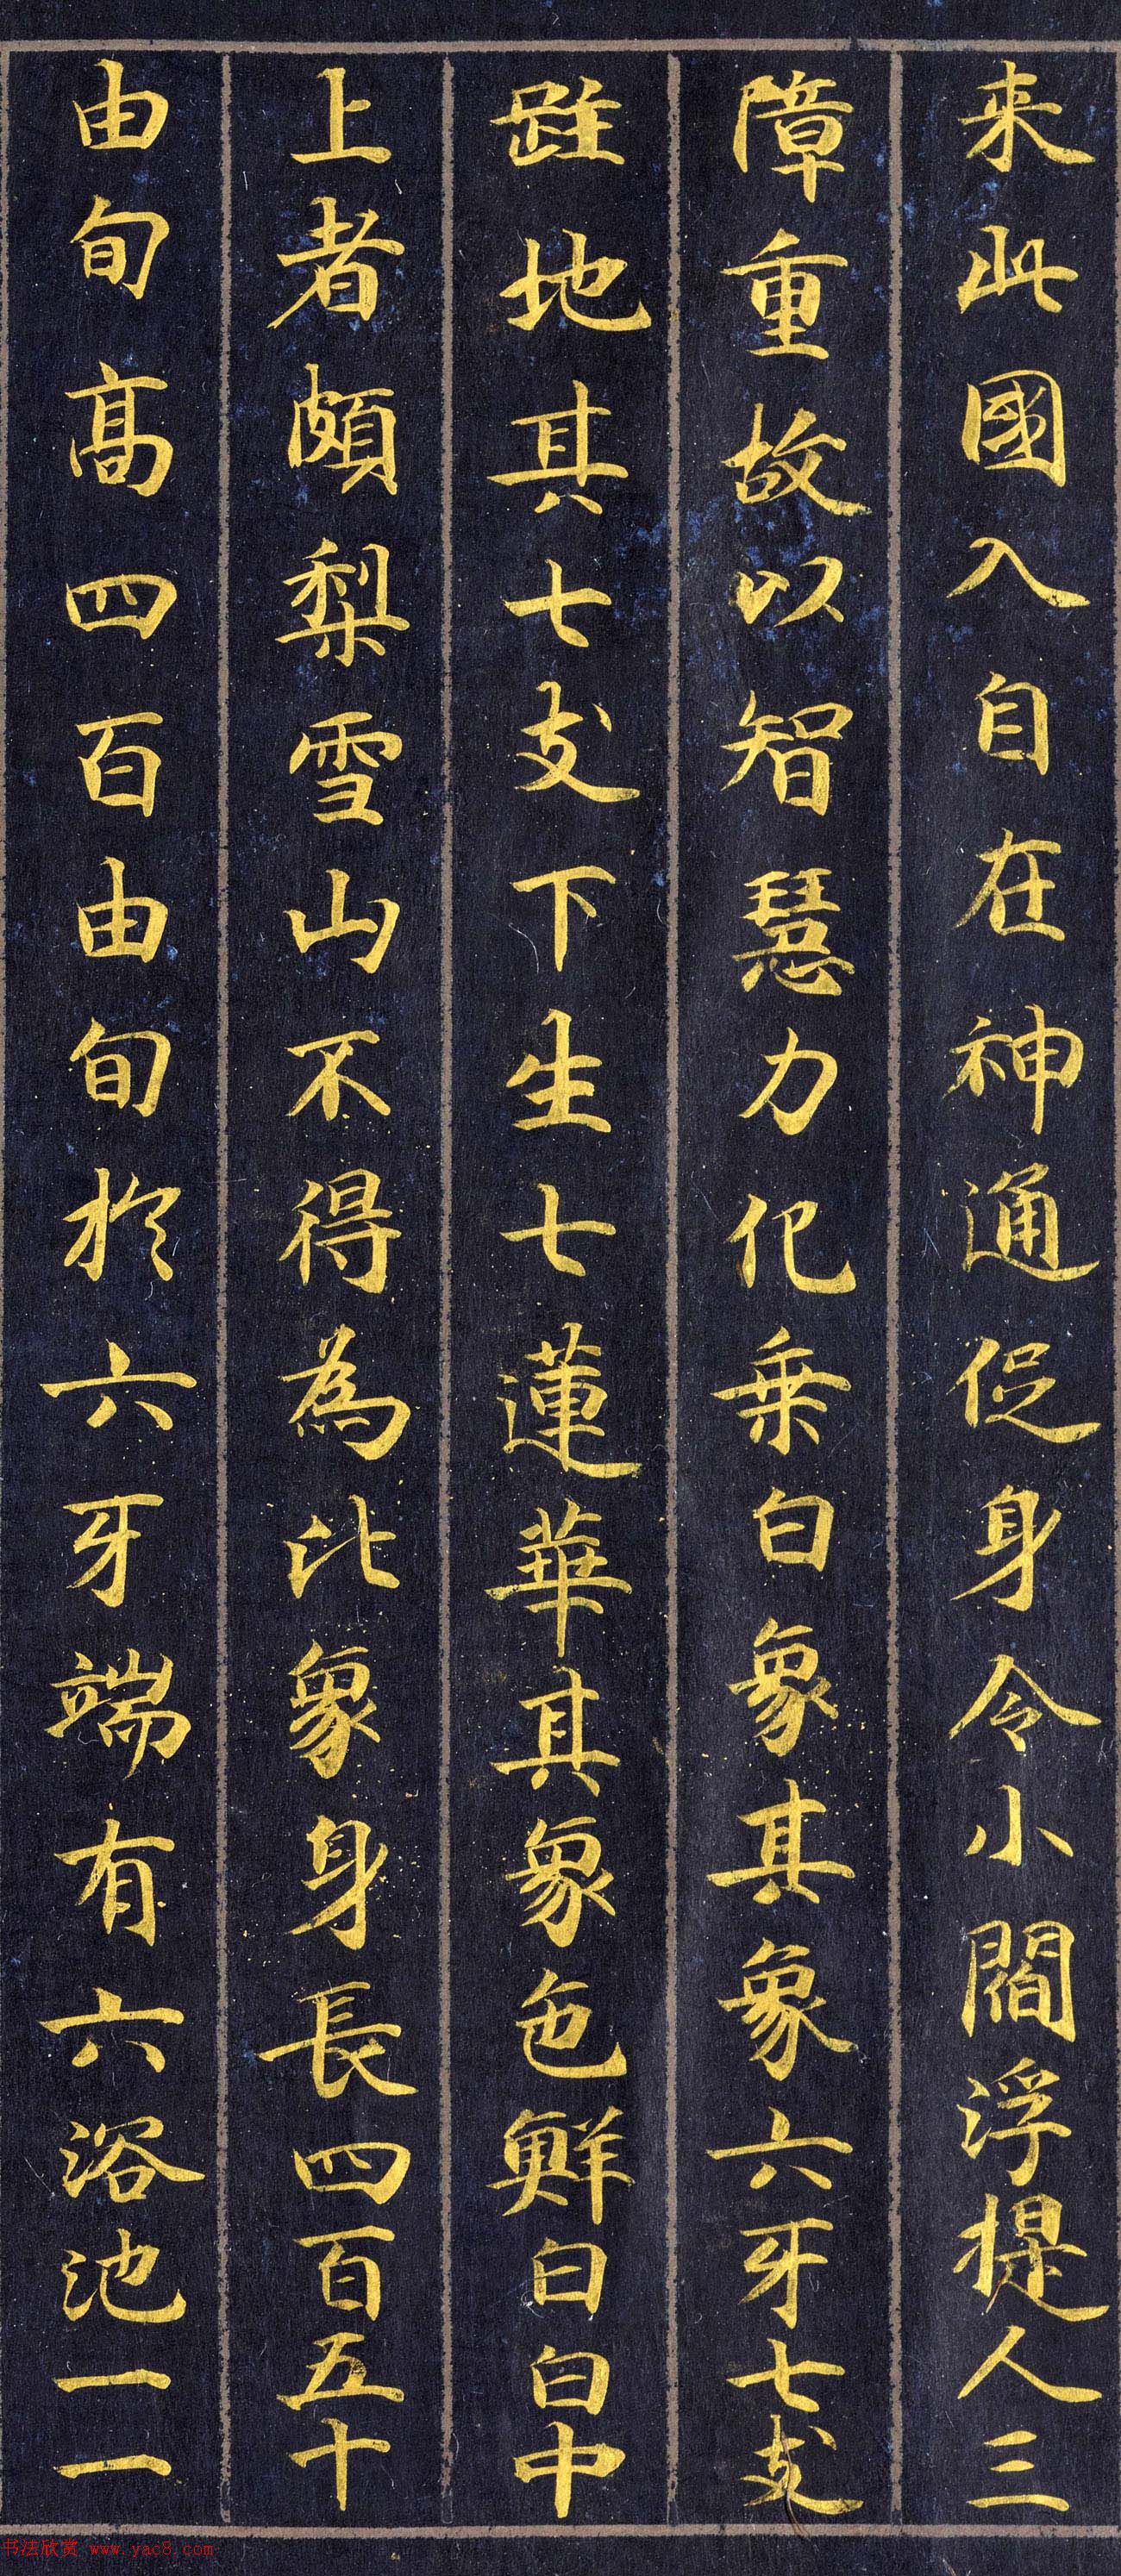 来此國入自在神通促身令小閻浮提人三
障重故以智慧力化乗白象其象六牙七支
跓地其七支下生七蓮華其象色鮮白白中
上者頗梨雪山不得為比象身長四百五十
由旬高四百由旬於六牙端有六浴池一一
书法欣赏 www.yac8.com